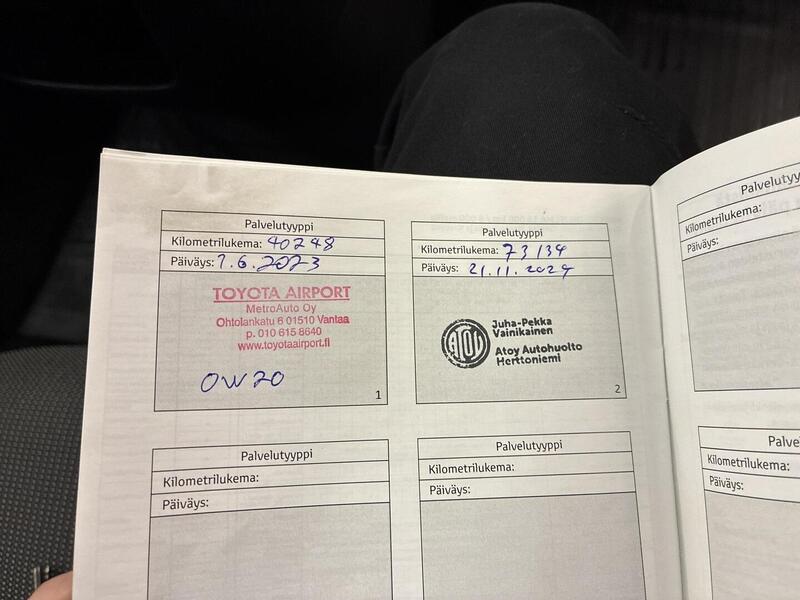 Palvelutyyppi
Kilometrilukema: 40248
Päiväys: 1.6.2023
TOYOTA AIRPORT
MetroAuto Oy
Ohtolankatu 6 01510 Vantaa
p. 010 615 8640
www.toyotaairport.fi
OW20
1
Palvelutyyppi
Kilometrilukema: 73134
Päiväys: 21.11.2024
ATOY
Juha-Pekka
Vainikainen
Atoy Autohuolto
Herttoniemi
2
Palvelutyyppi
Kilometrilukema:
Päiväys:
Palvelutyyppi
Kilometrilukema:
Päiväys:
Palvelutyy
Kilometrilukema:
Päiväys:
Palve
Kilometrilukema:
Päiväys: